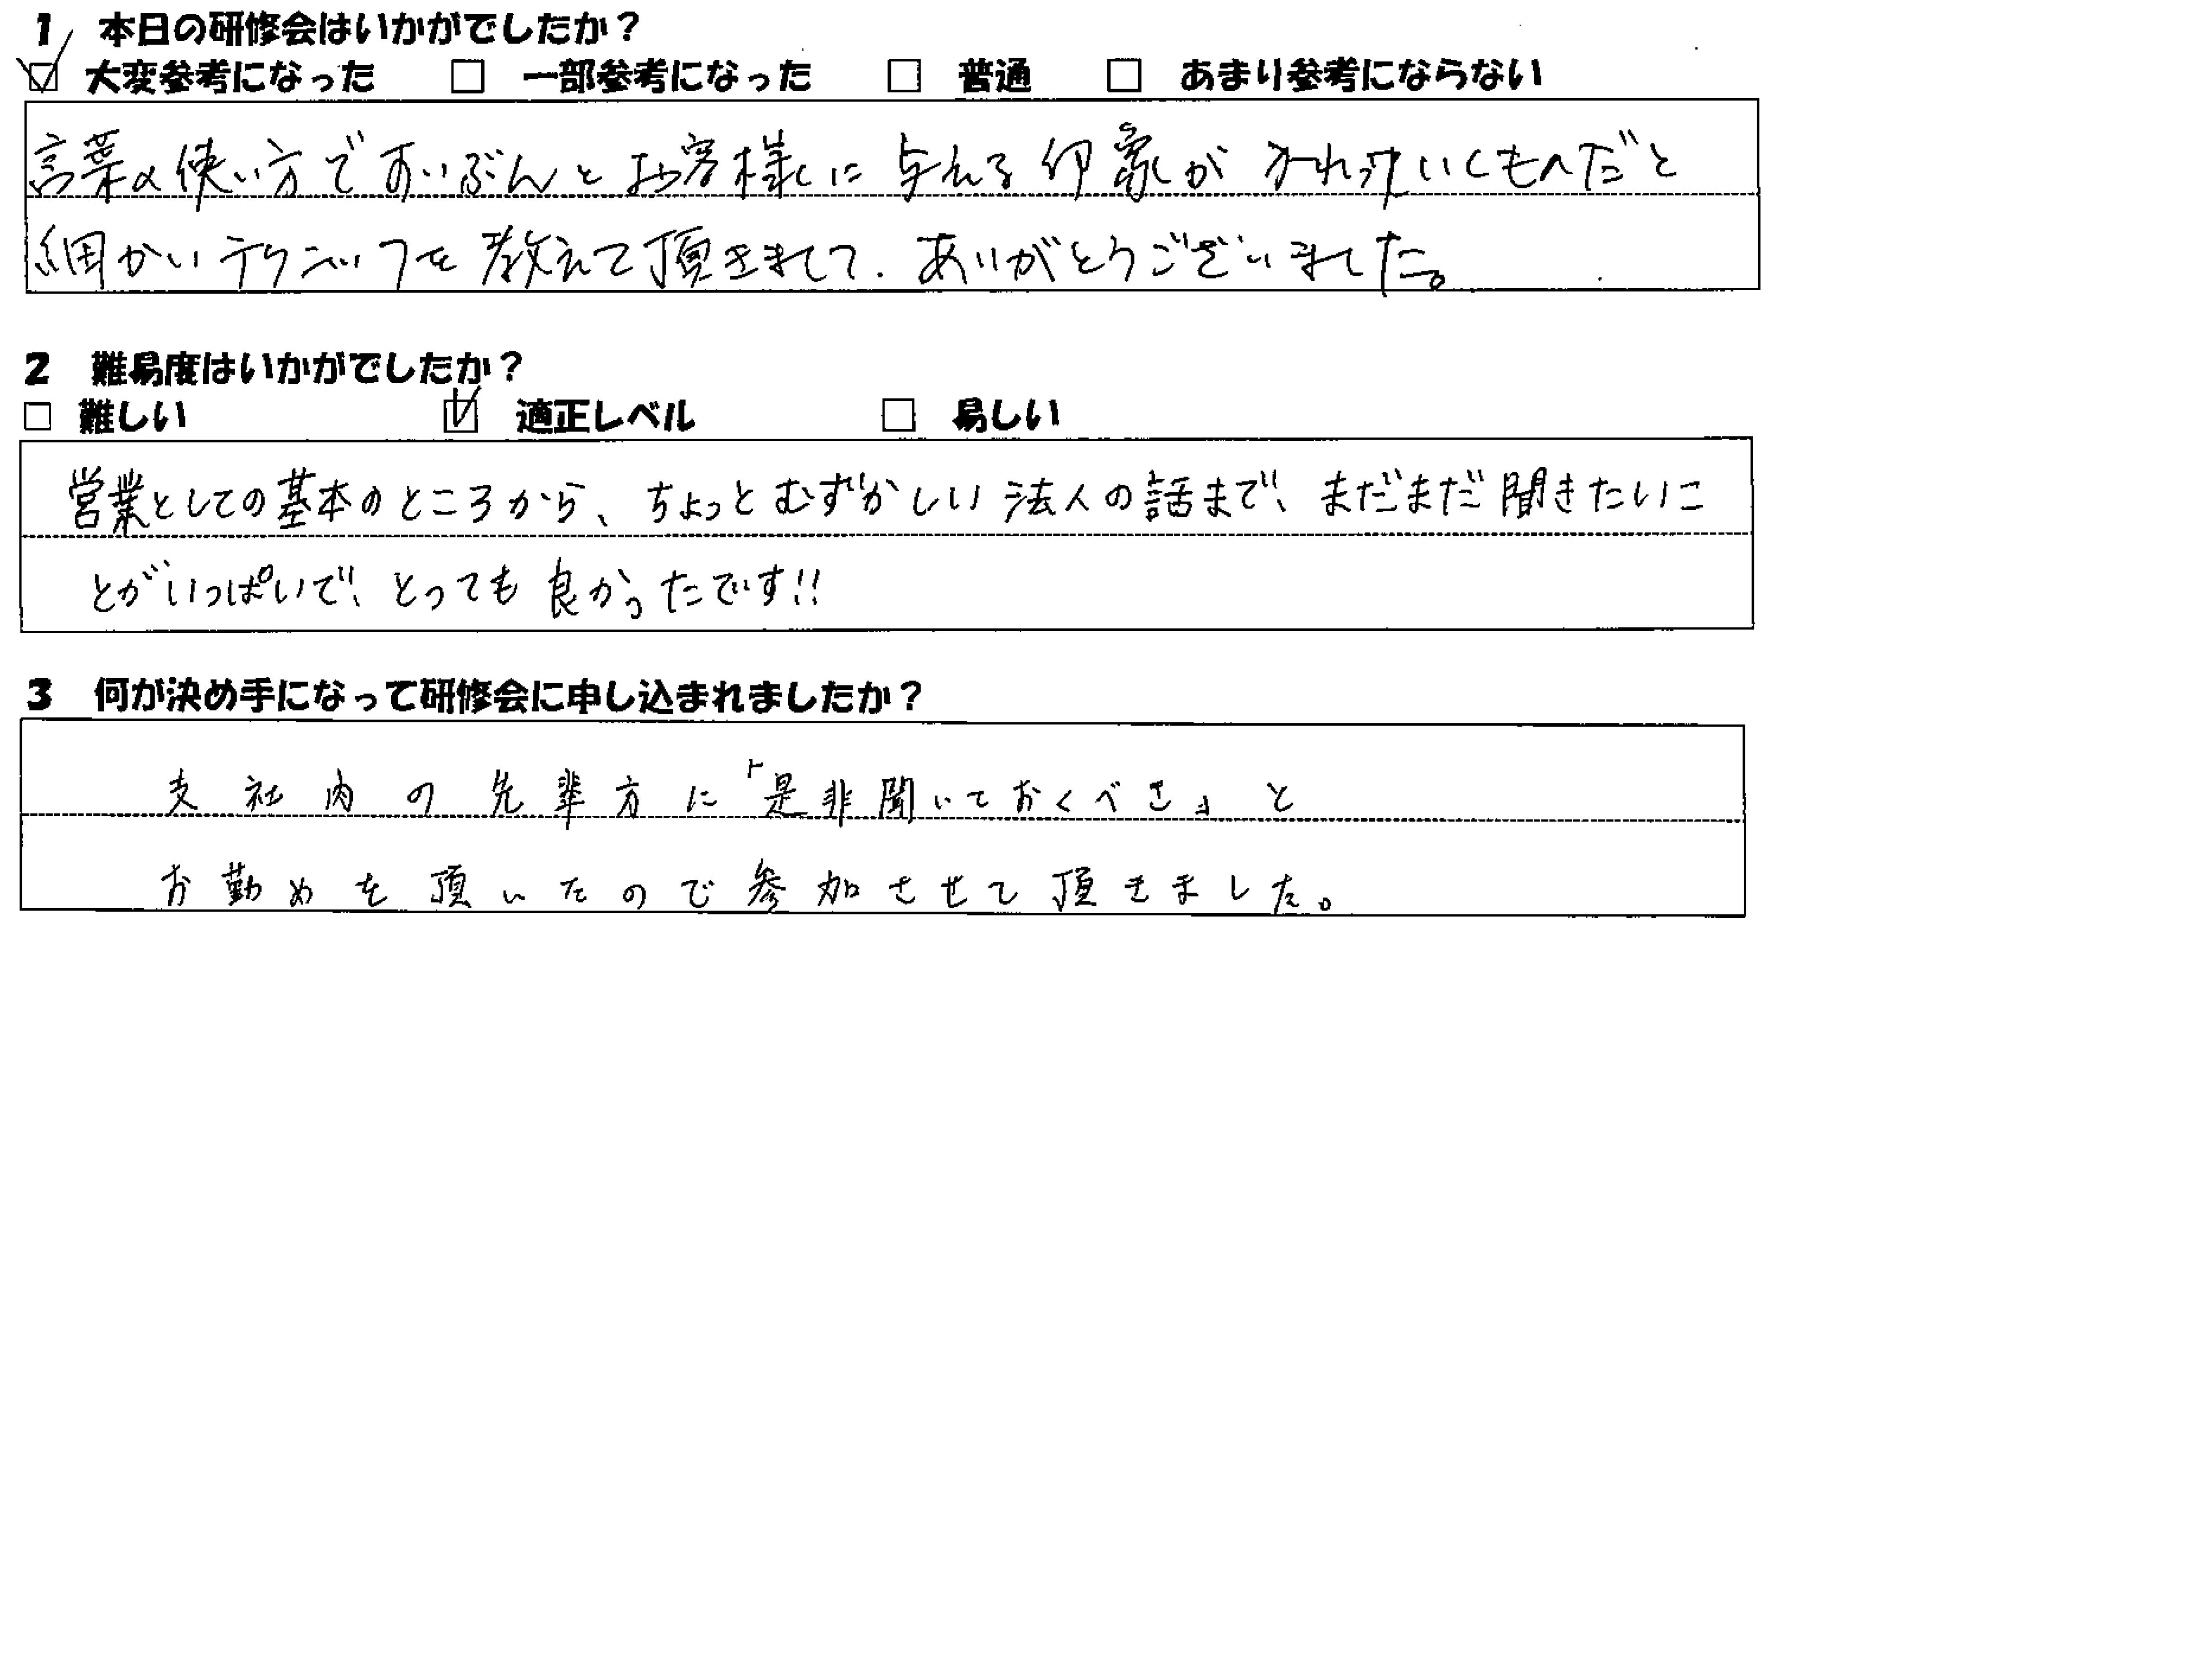 1 本日の研修会はいかがでしたか？
☑ 大変参考になった □ 一部参考になった □ 普通 □ あまり参考にならない
言葉の使い方でずいぶんとお客様に与える印象がかわっていくもんだと
細かいテクニックを教えて頂きまして、ありがとうございました。
2 難易度はいかがでしたか？
□ 難しい ☑ 適正レベル □ 易しい
営業としての基本のところから、ちょっとむずかしい法人の話まで、まだまだ聞きたいこ
とがいっぱいで、とっても良かったです!!
3 何が決め手になって研修会に申し込まれましたか？
支社内の先輩方に「是非聞いておくべき」と
お勤めを頂いたので参加させて頂きました。